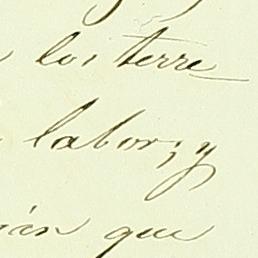 los terre
labor; y
ián que